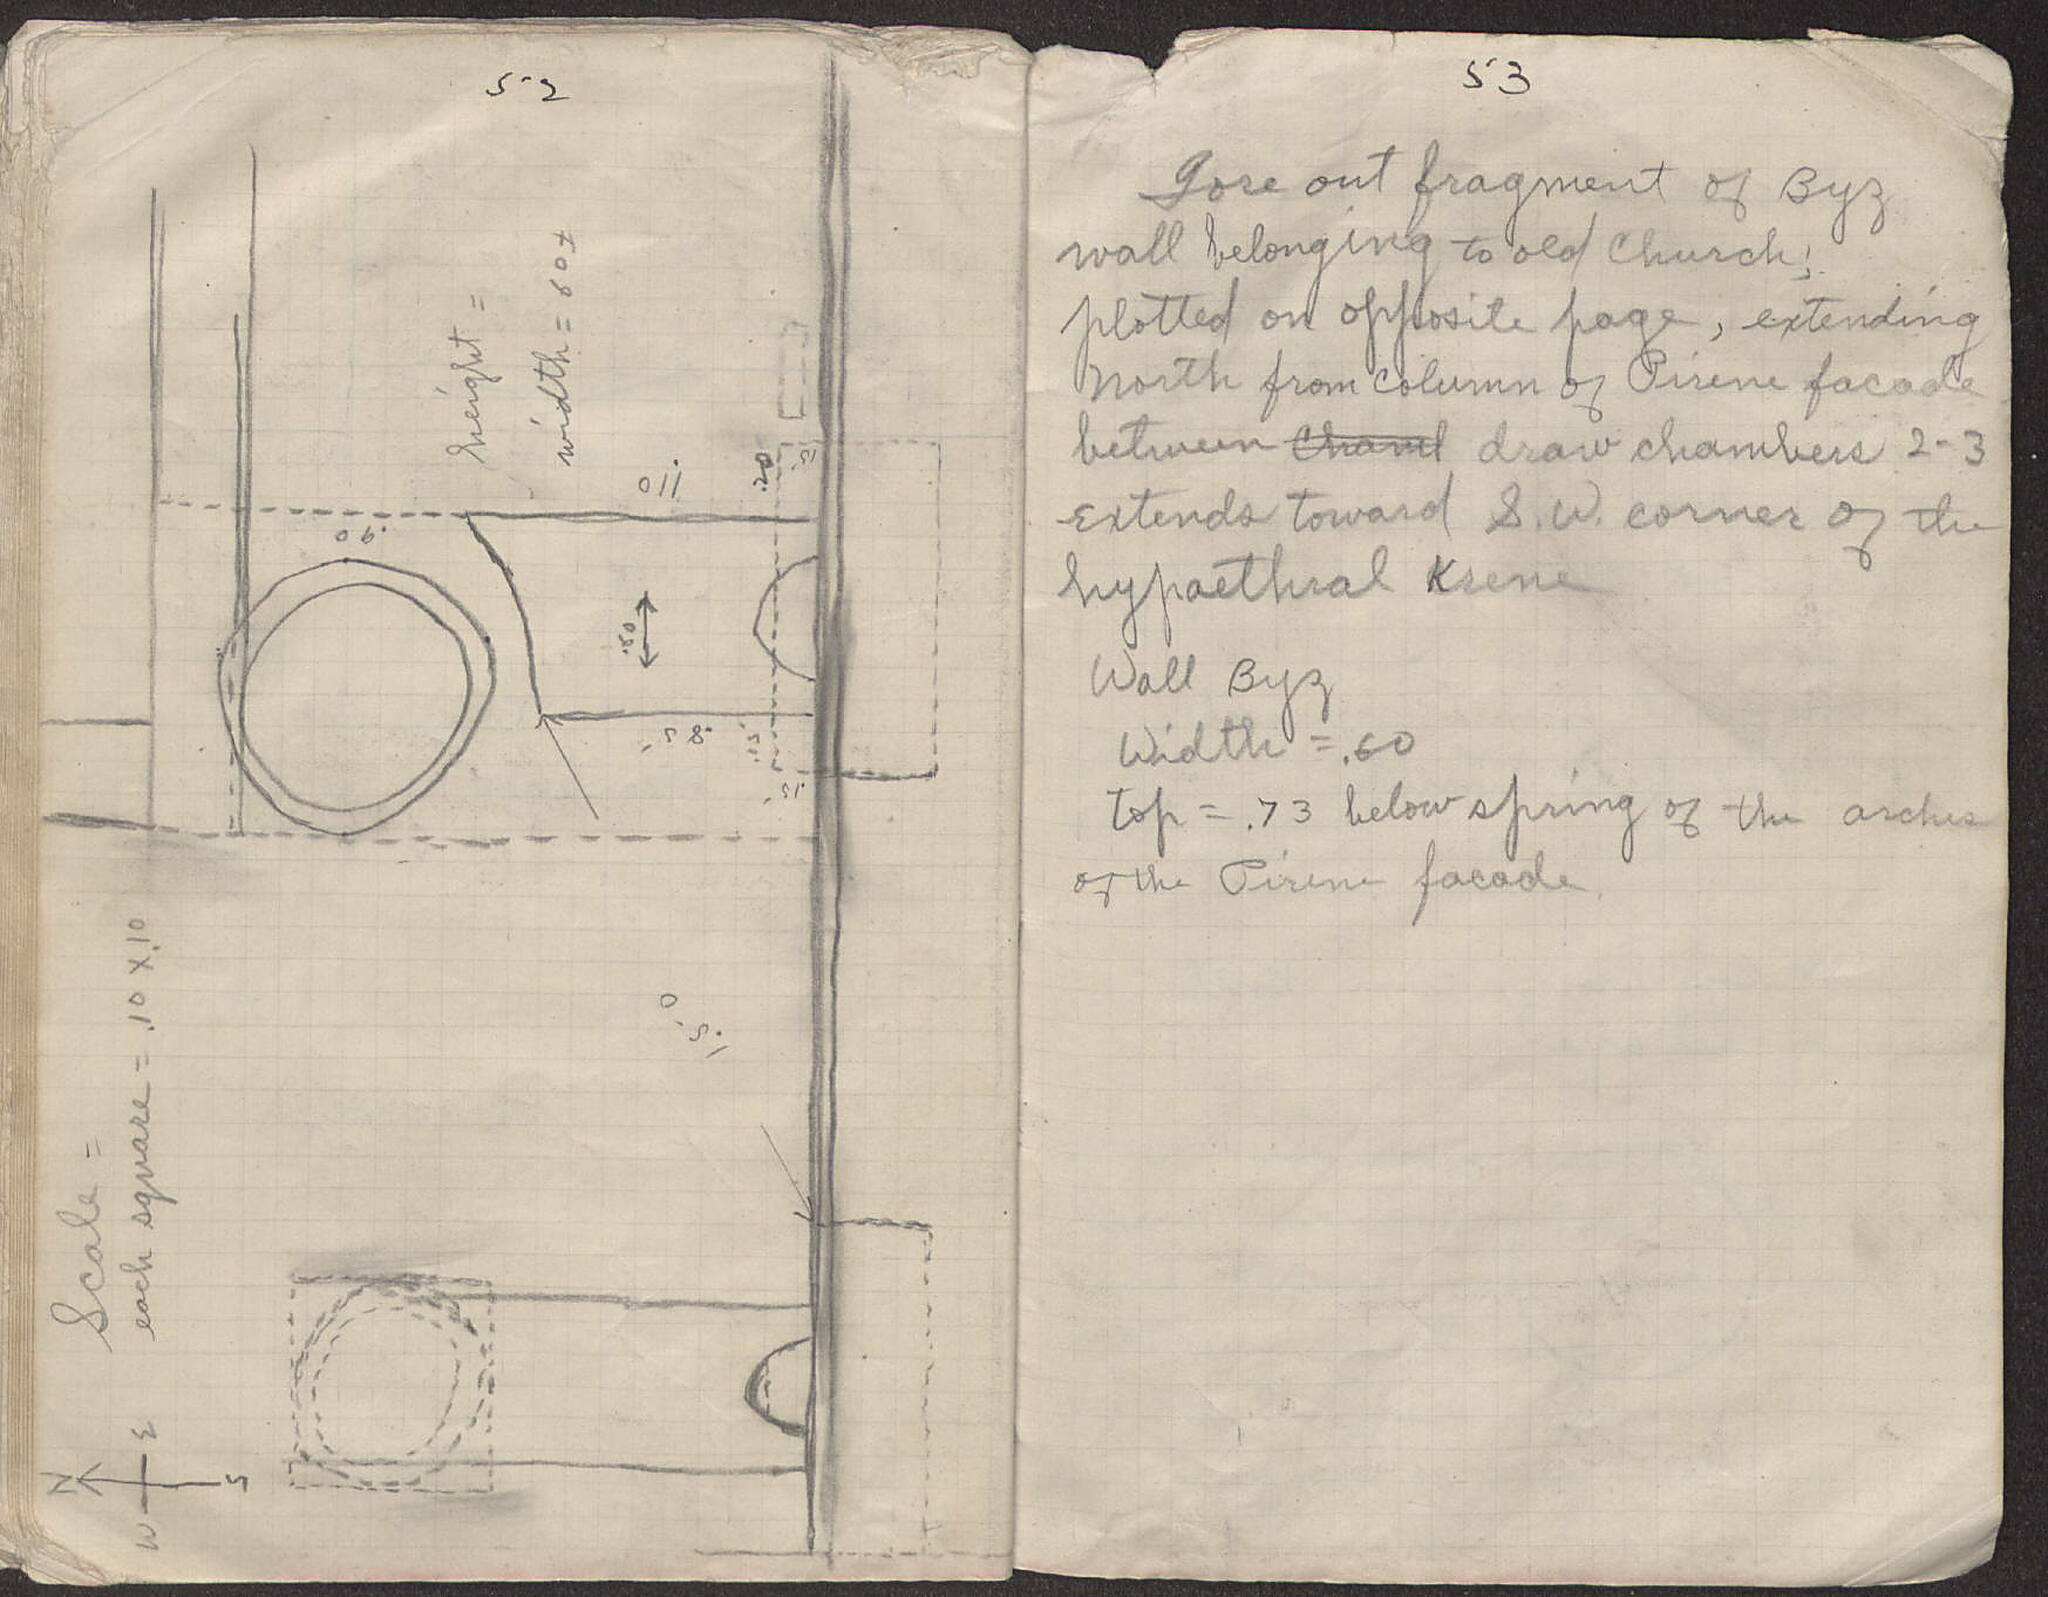 52
height =
width = 60±
1.10
.20
.15
.90
.60
.85
.15
.15
1.50
Scale =
each square = .10 x .10
N
W E
S
53
Tore out fragment of Byz
wall belonging to old Church;
plotted on opposite page, extending
North from column of Pirene facade
between Chamb draw chambers 2-3
Extends toward S.W. corner of the
hypaethral Krene
Wall Byz
Width = .60
top = .73 below spring of the arches
of the Pirene facade